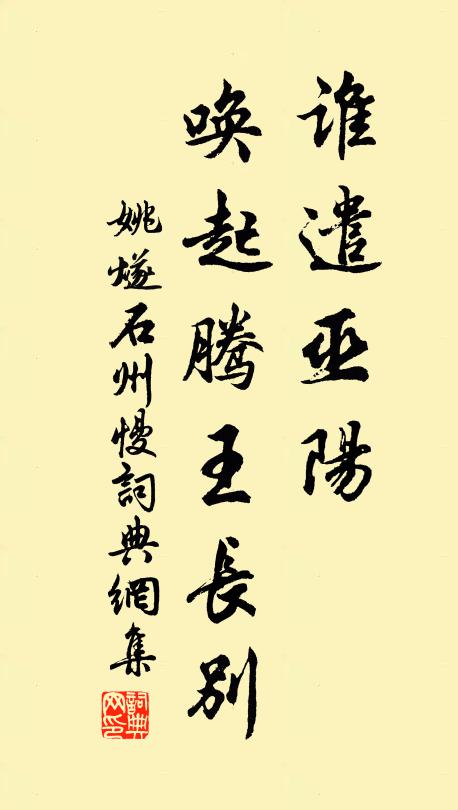 誰遣巫陽
喚起騰王長別
姚燧石州慢詞典網集
詞典
网印